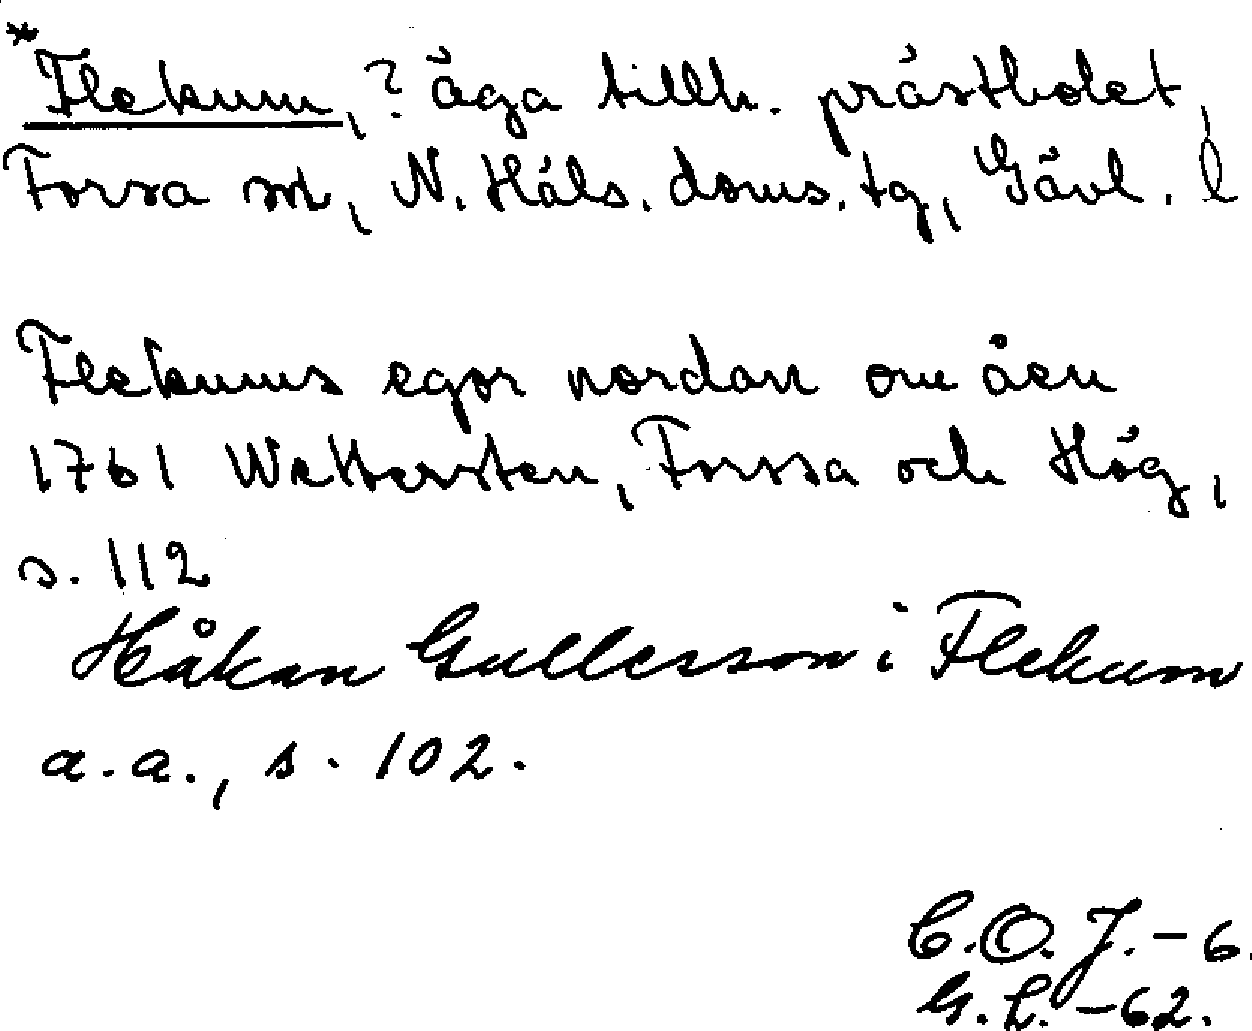 *Flekum, ? äga tillh. prästbolet,
Forsa sn, N. Häls. doms. tg, Gävl. l
Flekums egor nordan om åen
1761 Wettersten, Forssa och Hög,
s. 112
Håkan Gullesson i Flekum
a.a., s. 102.
C.O.J. - 6.
G.L. - 62.